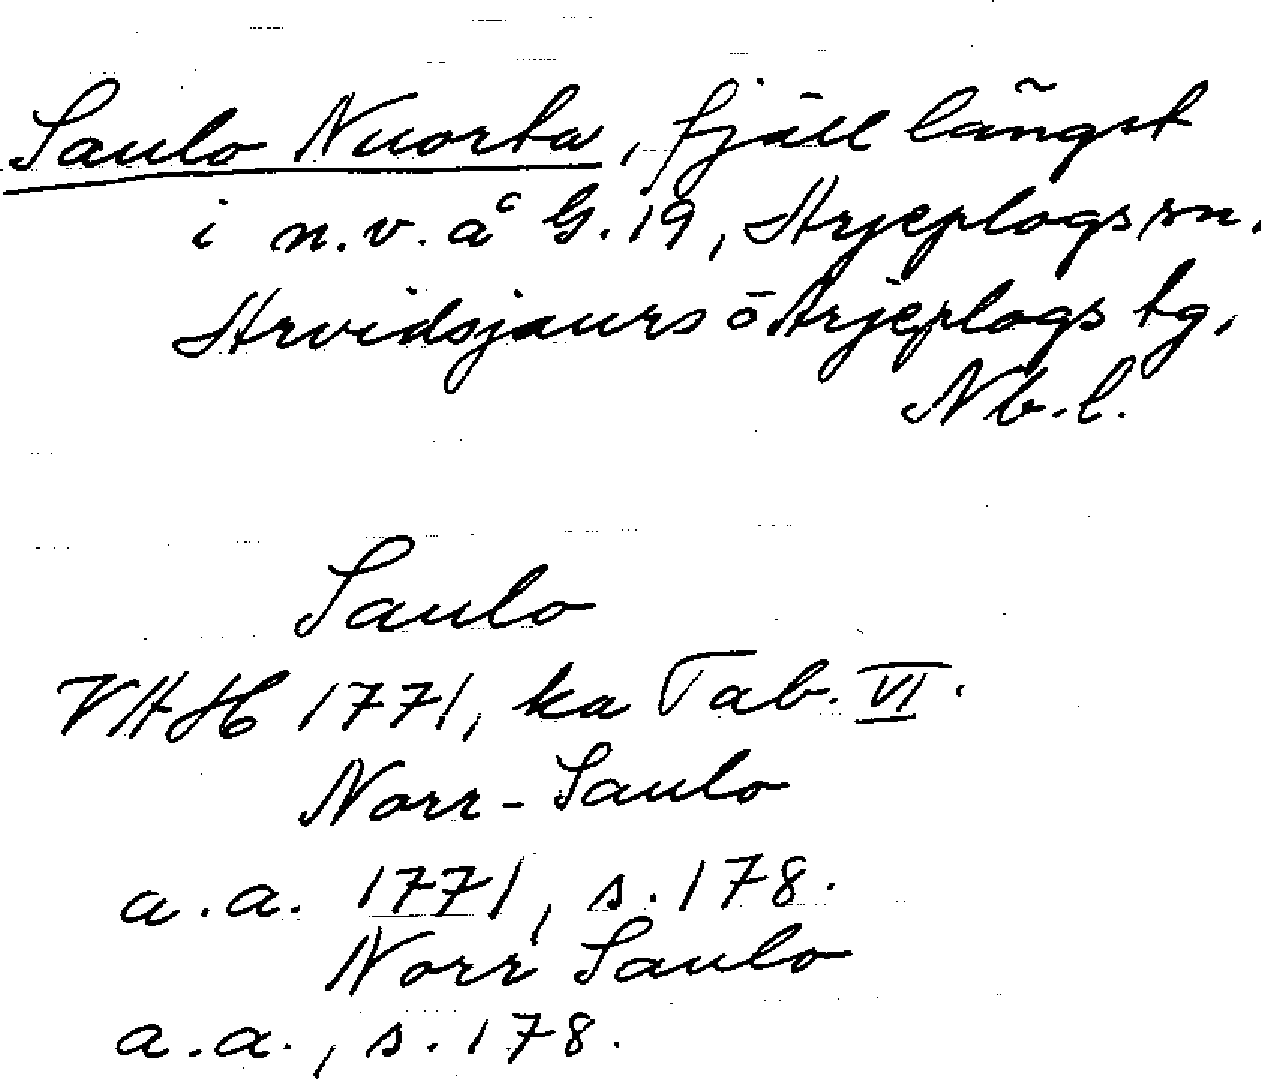 Saulo Nuorta, fjäll längst
i n.v. å G.19, Arjeplogs sn.
Arvidsjaurs o Arjeplogs tg.
Nb.l.
Saulo
VAH 1771, ka Tab. VI.
Norr-Saulo
a.a. 1771, s.178.
Norr Saulo
a.a., s.178.